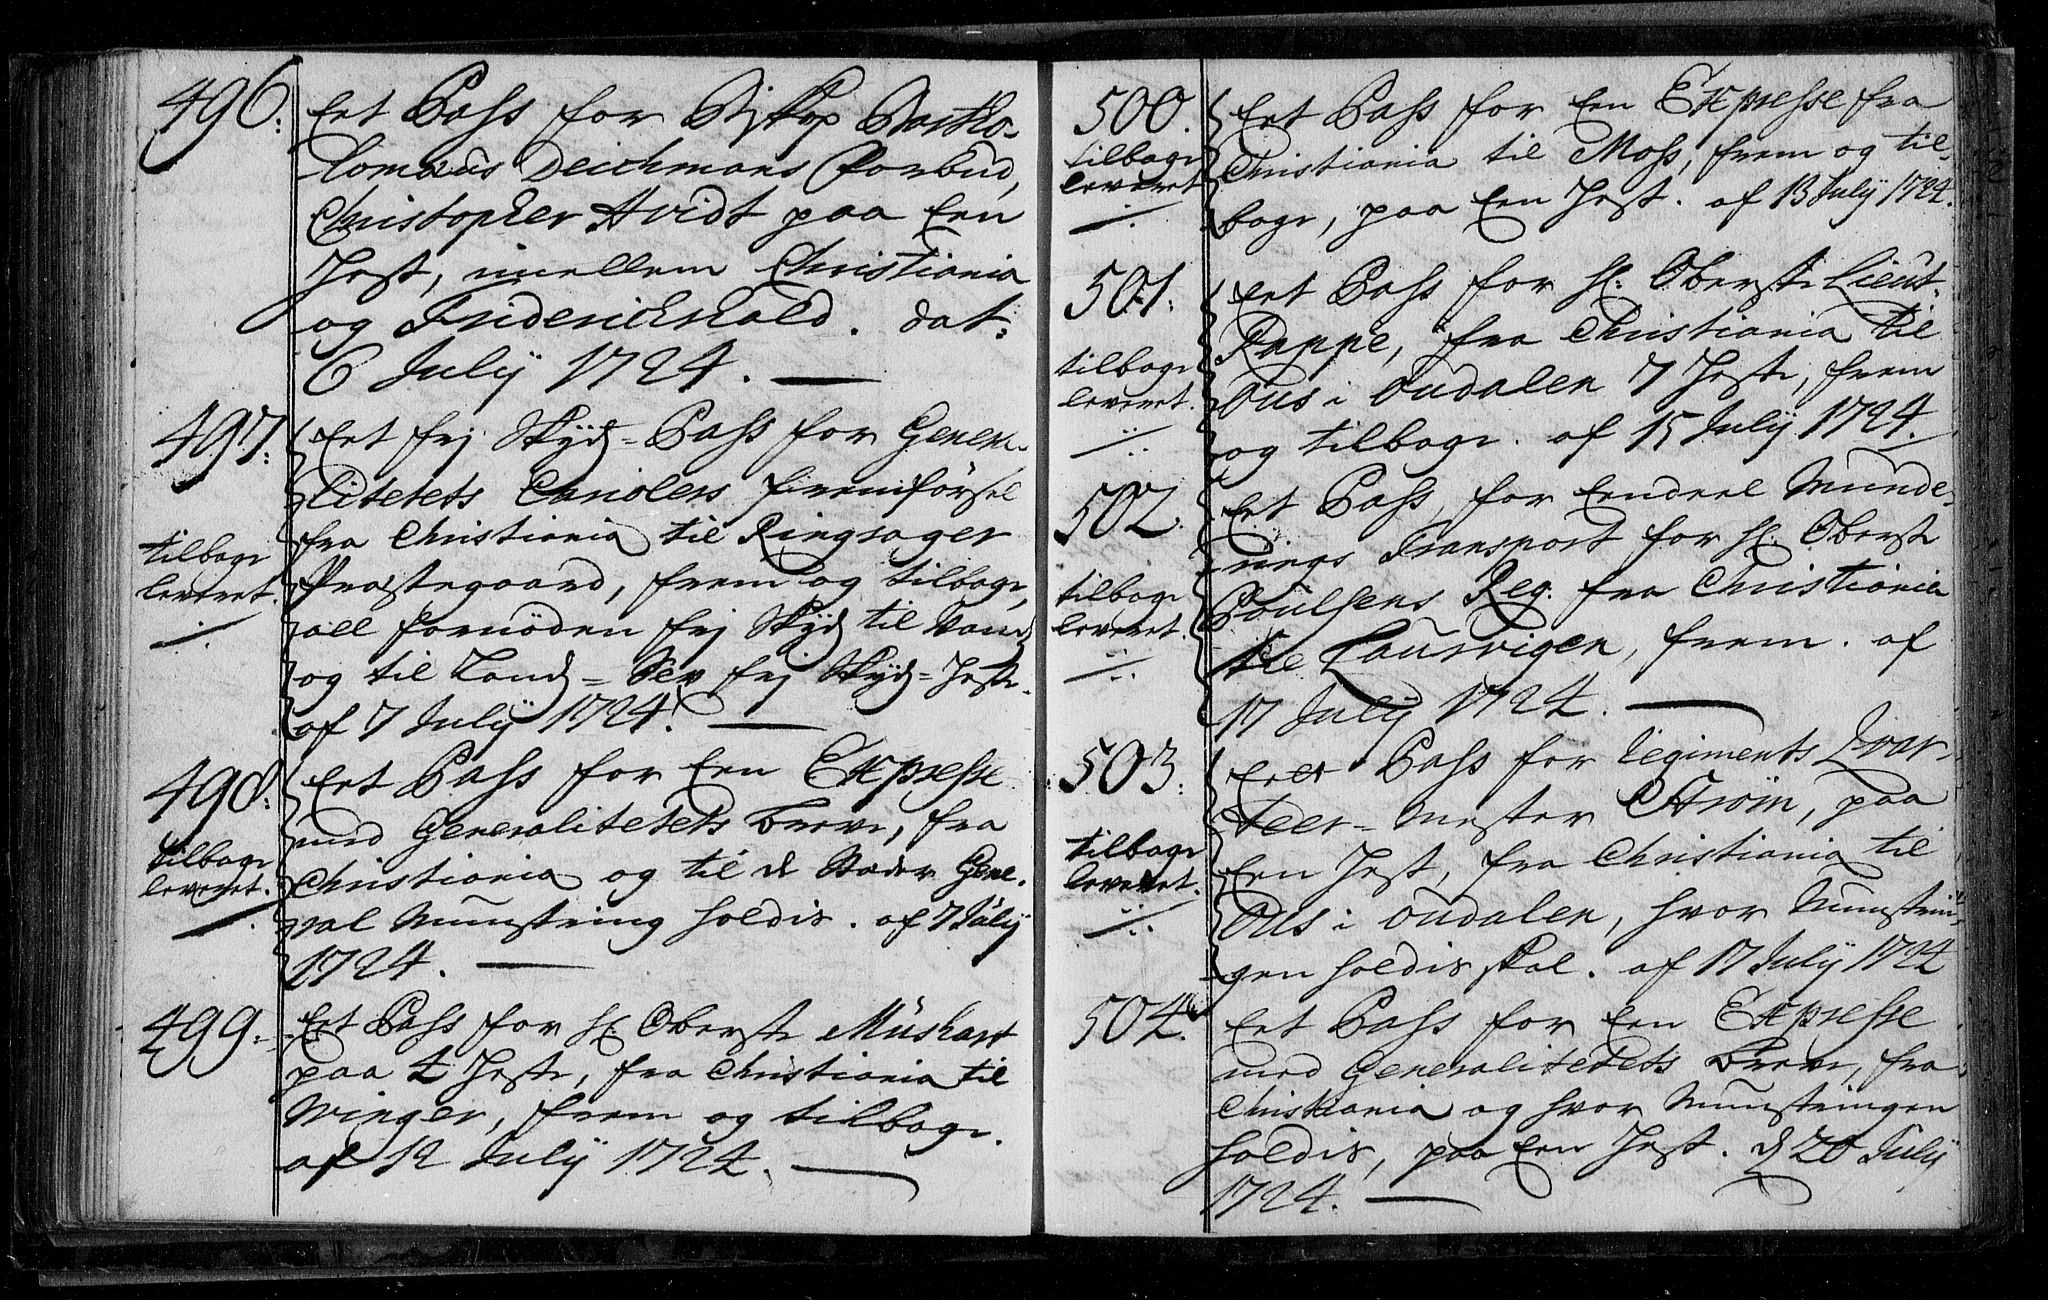 496: Eet Pass for Biskop Bartho-
lomæus Deichmans forbud,
Christopher Hvidt paa Een
Hest, imellem Christiania
og Friderichshald. dat:
6 July 1724.
497: Eet frj Skyds-Pass for Genera-
litetets Carioles fremførsel
fra Christiania til Ringsager
Præstegaard, frem og tilbage,
all fornøden frj Skyds til Vands
og til Lands frj Skyds-Heste.
af 7 July 1724.
tilbage
leveret.
498: Eet Pass for Een Expresse
med Generalitetets breve, fra
Christiania og til de Stæder Gene-
ral Munstring holdis. af 7 July
1724.
tilbage
leveret.
499. Eet Pass for Hr. Oberste Müshart
paa 4 Heste, fra Christiania til
Winger, frem og tilbage.
af 12 July 1724.
500. Eet Pass for Een Expresse fra
Christiania til Moss, frem og til-
bage, paa Een Hest. af 13 July 1724.
tilbage
leveret
501. Eet Pass for Hr. Oberste Lieut:
Rappe, fra Christiania til
Ous i Oudalen 7 Heste, frem
og tilbage. af 15 July 1724.
tilbage
leveret.
502. Eet Pass, for Eendeel Munde-
rings Transport for Hr. Oberste
Poulsens Reg. fra Christiania
til Laurvigen, frem. af
17 July 1724.
tilbage
leveret.
503. Eet Pass for Regiments Qvar-
teer-Mester Strøm, paa
Een Hest, fra Christiania til
Ous i Oudalen, hvor Munstrin-
gen holdis skal. af 17 July 1724
tilbage
leveret.
504. Eet Pass for Een Expresse
med Generalitetets breve, fra
Christiania og hvor Munstringen
holdis, paa Een Hest. d 20 July
1724.